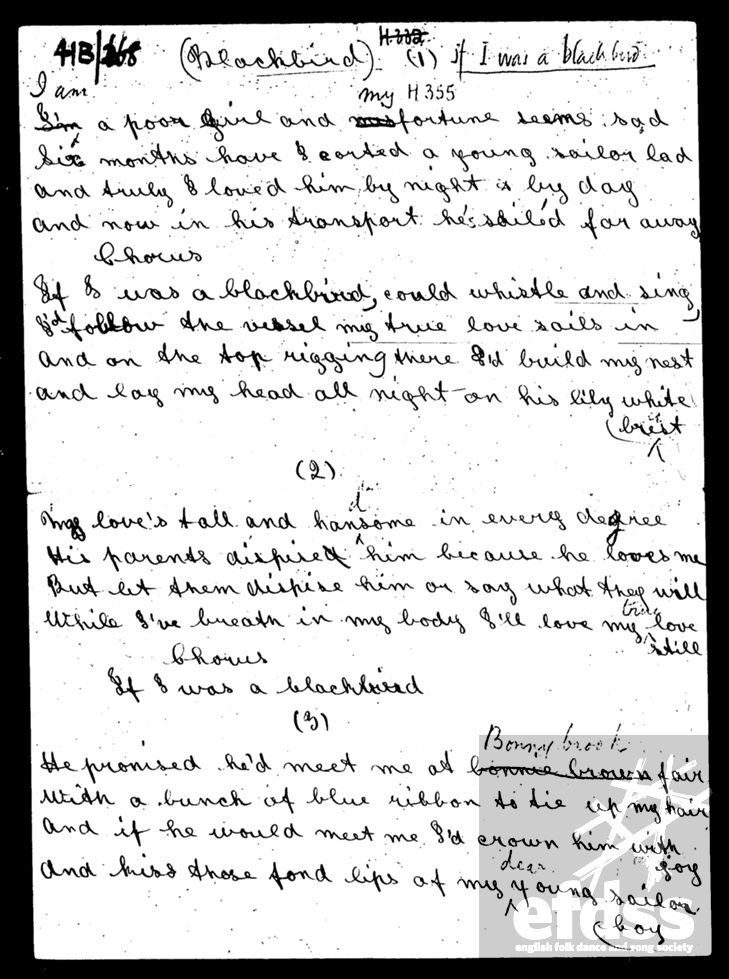 H 332
41B/268 (Blackbird) (1) if I was a blackbird
I am my H 355
I'm a poor Girl and misfortune seems sad
Six months have I corted a young sailor lad
and truly I loved him by night & by day
and now in his transport he's sailed far away
Chorus
If I was a blackbird, could whistle and sing,
I'd follow the vessel my true love sails in
and on the top rigging there I'd build my nest
and lay my head all night on his lily white
(brest
(2)
d
My love's tall and hansome in every degree
His parents dispised him because he loves me
But let them dispise him or say what they will
While I've breath in my body I'll love my true love
still
Chorus
If I was a blackbird
(3)
Bonny brook
He promised he'd meet me at bonnie brown fair
With a bunch of blue ribbon to tie up my hair
And if he would meet me I'd crown him with
joy
And kiss those fond lips of my dear young sailor
(boy
efdss
english folk dance and song society